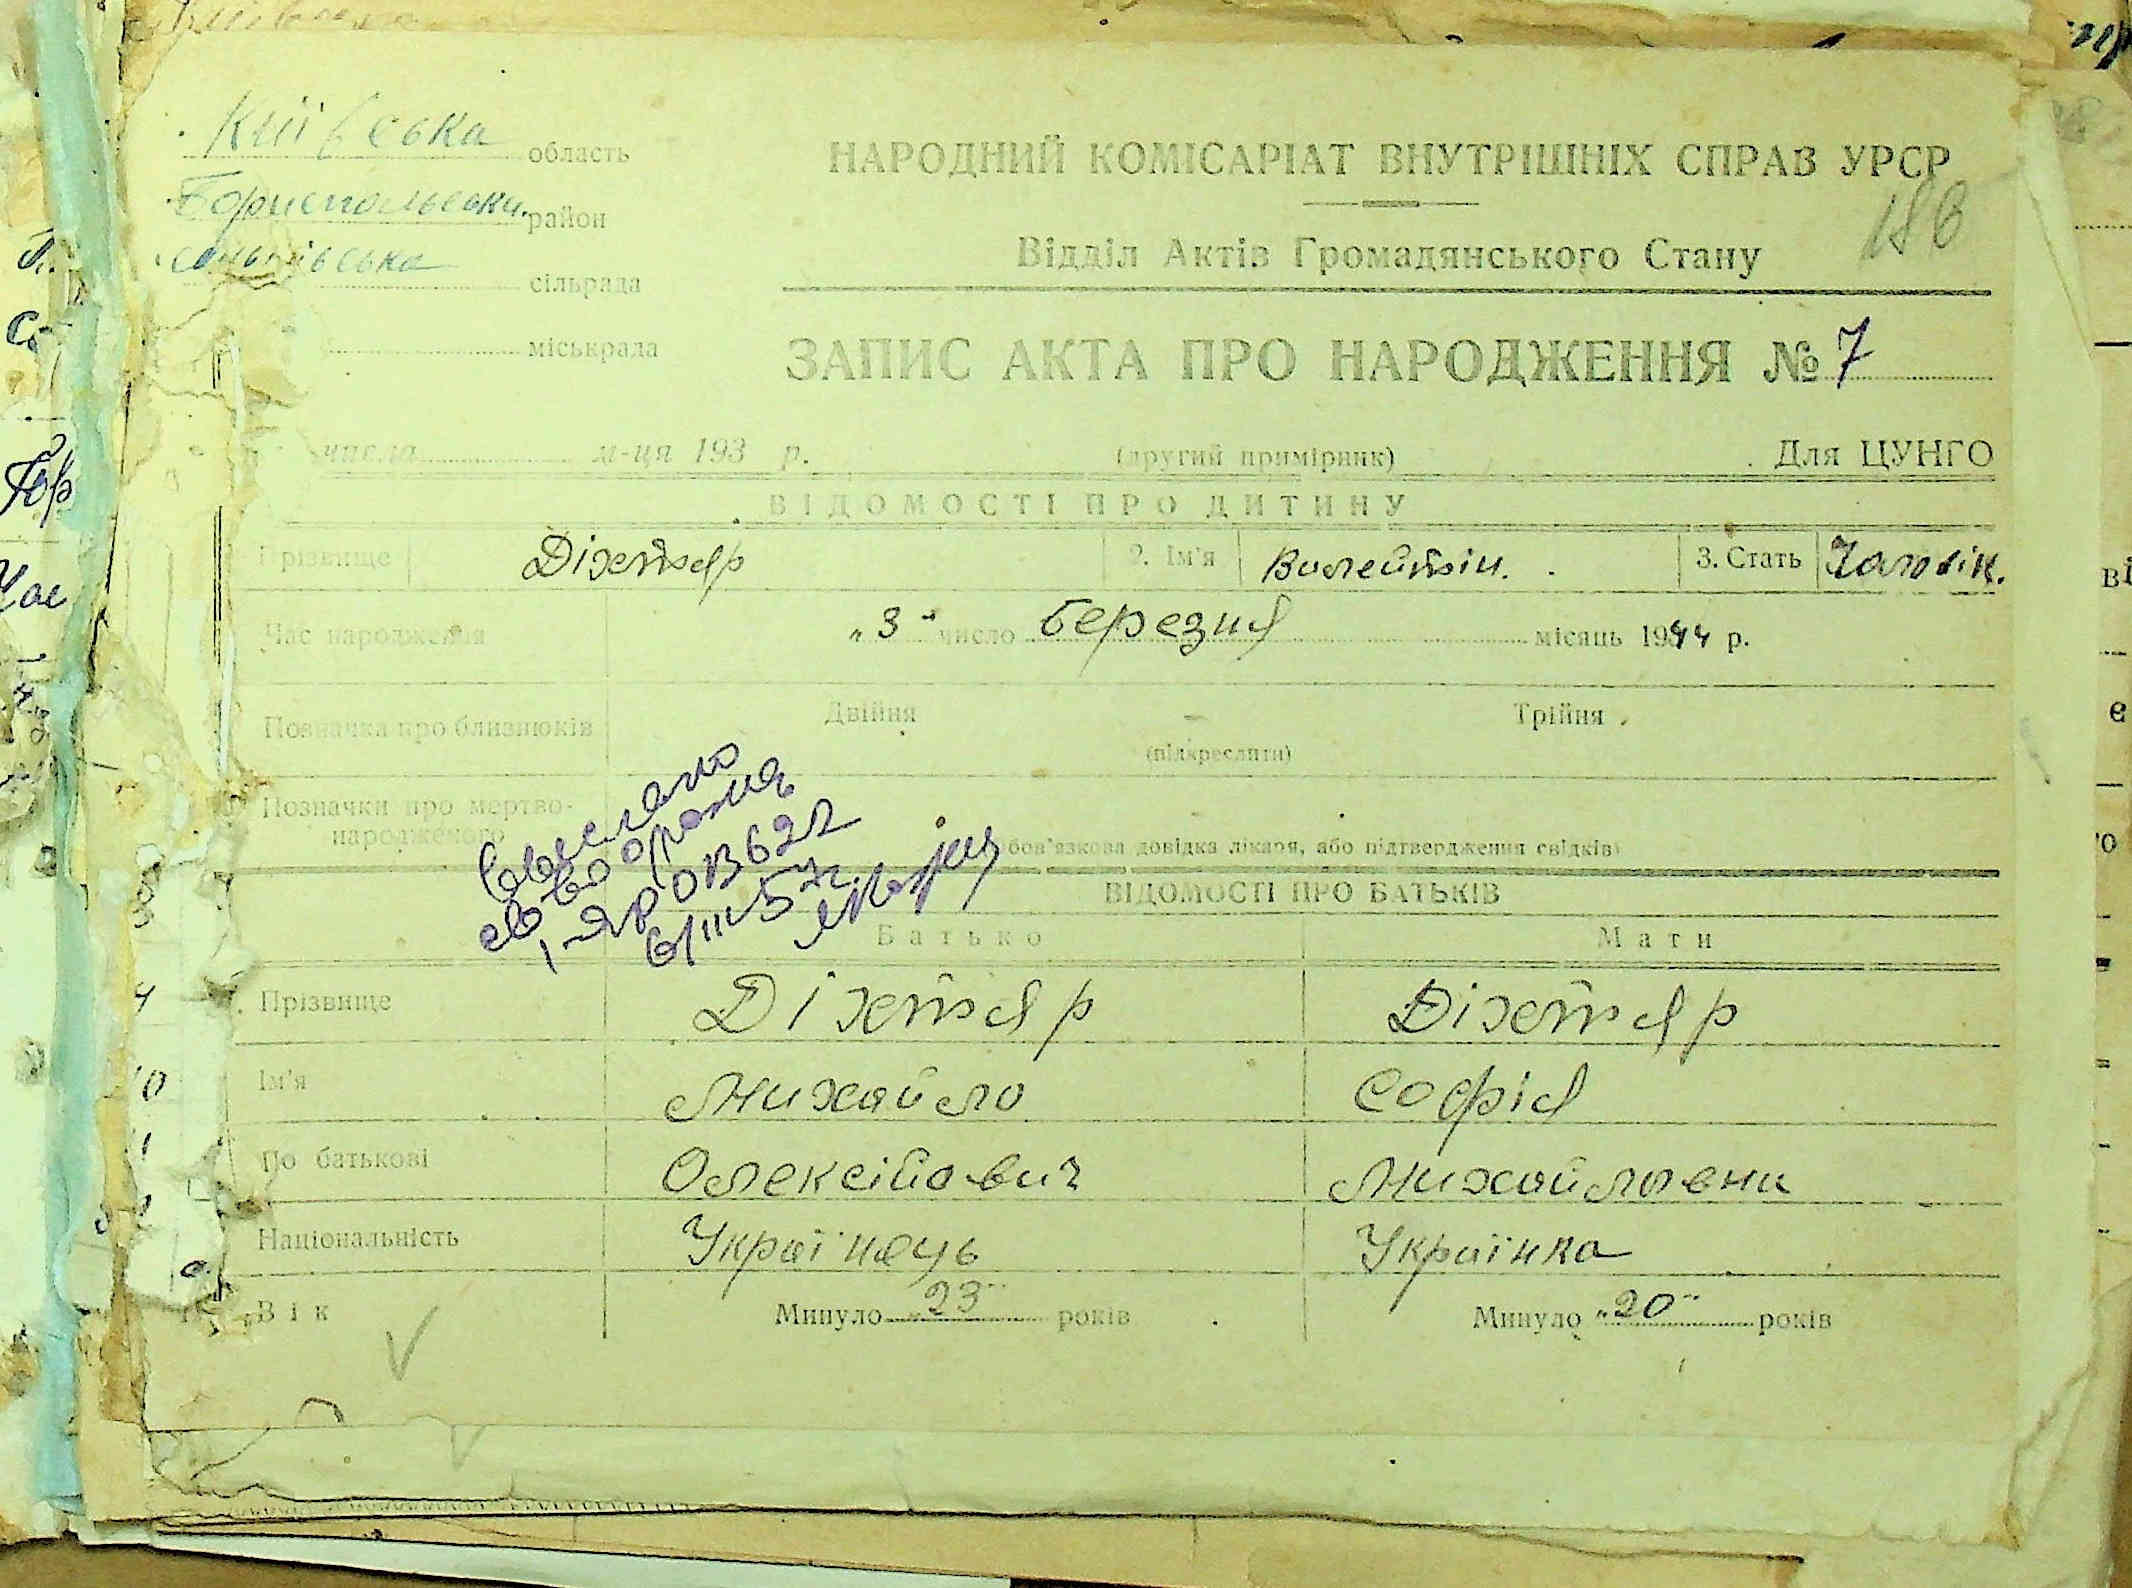 Київська область
Бориспольськи район
сеньківська сільрада
міськрада
НАРОДНИЙ КОМІСАРІАТ ВНУТРІШНІХ СПРАВ УРСР
186
Відділ Актів Громадянського Стану
ЗАПИС АКТА ПРО НАРОДЖЕННЯ № 7
числа м-ця 193 р. (другий примірник) Для ЦУНГО
ВІДОМОСТІ ПРО ДИТИНУ
Прізвище Діхтяр 2. Ім'я 3. Стать Чоловік.
Час народження „3" число березня місяць 1944 р.
Позначка про близнюків Двійня Трійня
(підкреслити)
Позначки про мертво-
народженого
бов'язкова довідка лікаря, або підтвердження свідків)
выслано
1-ЯР 013622
6/III 57г.
ВІДОМОСТІ ПРО БАТЬКІВ
Батько Мати
Прізвище Діхтяр Діхтяр
Ім'я Михайло Софія
По батькові Олексійович Михайловна
Національність Українець Українка
Вік Минуло „23" років Минуло „20" років